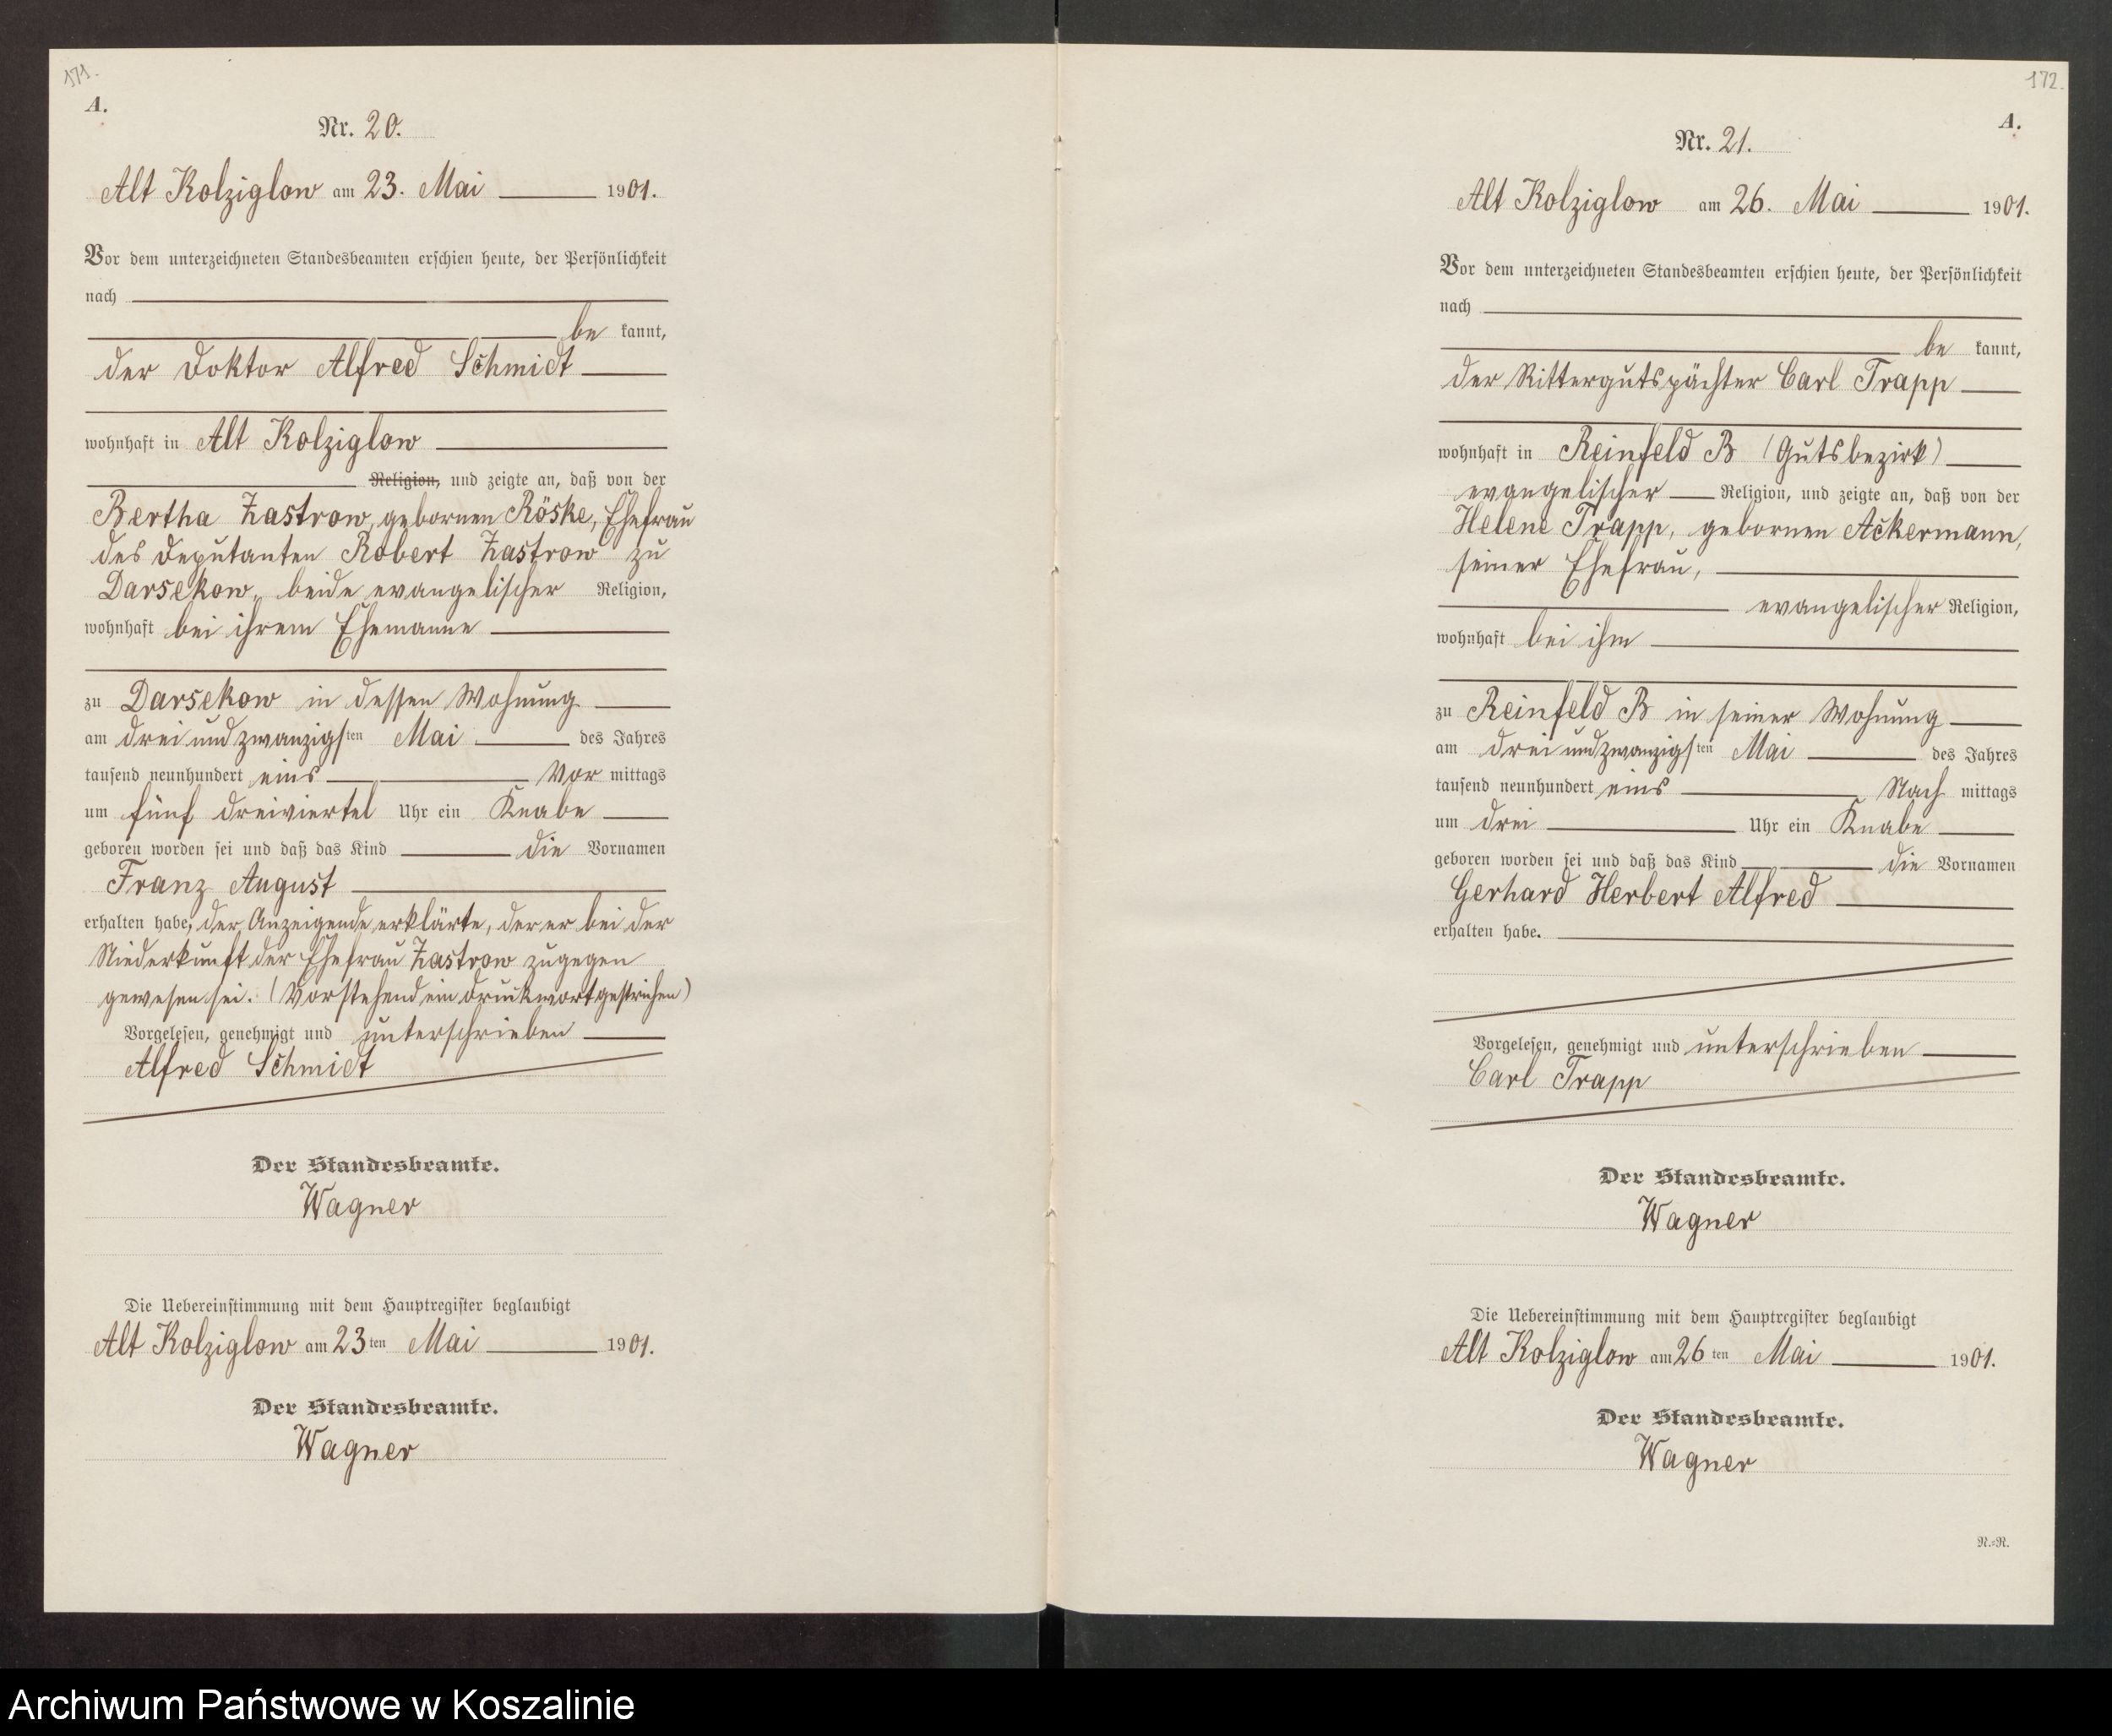 171.
A.
Nr. 20.
Alt Kolziglow am 23. Mai 1901.
Vor dem unterzeichneten Standesbeamten erschien heute, der Persönlichkeit
nach
be kannt,
der Doktor Alfred Schmidt
wohnhaft in Alt Kolziglow
Religion, und zeigte an, daß von der
Bertha Zastrow, gebornen Röske, Ehefrau
des Deputanten Robert Zastrow zu
Darsekow, beide evangelischer Religion,
wohnhaft bei ihrem Ehemanne
zu Darsekow in dessen Wohnung
am dreiundzwanzigsten Mai des Jahres
tausend neunhundert eins Vor mittags
um fünf dreiviertel Uhr ein Knabe
geboren worden sei und daß das Kind die Vornamen
Franz August
erhalten habe, der Anzeigende erklärte, der er bei der
Niederkunft der Ehefrau Zastrow zugegen
gewesen sei. (Vorstehend ein Druckwort gestrichen)
Vorgelesen, genehmigt und unterschrieben
Alfred Schmidt
Der Standesbeamte.
Wagner
Die Uebereinstimmung mit dem Hauptregister beglaubigt
Alt Kolziglow am 23ten Mai 1901.
Der Standesbeamte.
Wagner
172.
A.
Nr. 21.
Alt Kolziglow am 26. Mai 1901.
Vor dem unterzeichneten Standesbeamten erschien heute, der Persönlichkeit
nach
be kannt,
der Rittergutspächter Carl Trapp
wohnhaft in Reinfeld B (Gutsbezirk)
evangelischer Religion, und zeigte an, daß von der
Helene Trapp, gebornen Ackermann,
seiner Ehefrau,
evangelischer Religion,
wohnhaft bei ihm
zu Reinfeld B in seiner Wohnung
am dreiundzwanzigsten Mai des Jahres
tausend neunhundert eins Nach mittags
um drei Uhr ein Knabe
geboren worden sei und daß das Kind die Vornamen
Gerhard Herbert Alfred
erhalten habe.
Vorgelesen, genehmigt und unterschrieben
Carl Trapp
Der Standesbeamte.
Wagner
Die Uebereinstimmung mit dem Hauptregister beglaubigt
Alt Kolziglow am 26ten Mai 1901.
Der Standesbeamte.
Wagner
N.=N.
Archiwum Państwowe w Koszalinie